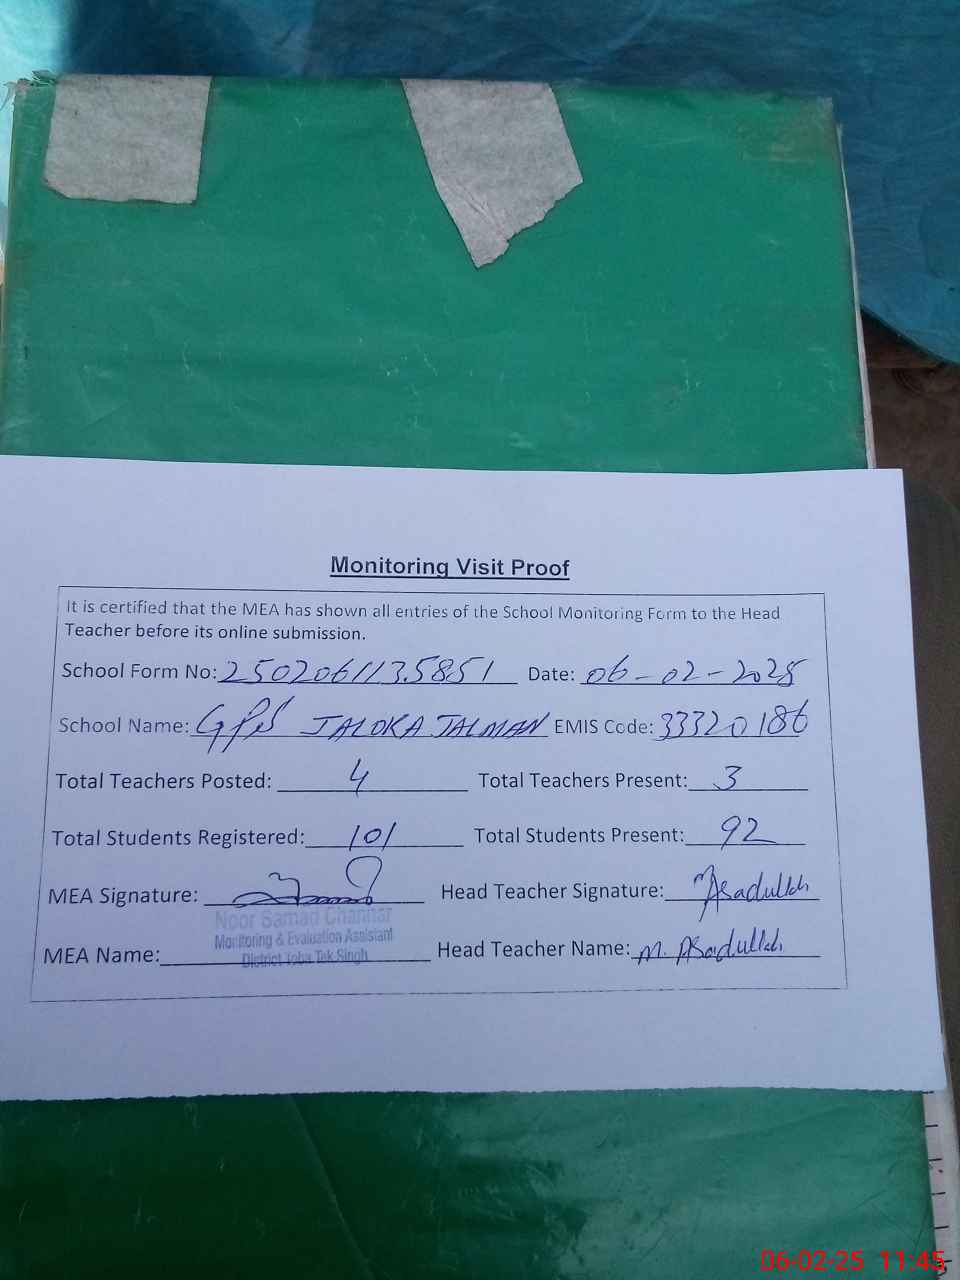 Monitoring Visit Proof
It is certified that the MEA has shown all entries of the School Monitoring Form to the Head
Teacher before its online submission.
School Form No: 2502061135851 Date: 06-02-2025
School Name: GPS JALOKA JALMAN EMIS Code: 33320186
Total Teachers Posted: 4 Total Teachers Present: 3
Total Students Registered: 101 Total Students Present: 92
MEA Signature: Head Teacher Signature: MAsadullah
Noor Samad Channar
Monitoring & Evaluation Assistant
MEA Name: District Toba Tek Singh Head Teacher Name: M. Asadullah
06-02-25 11:45